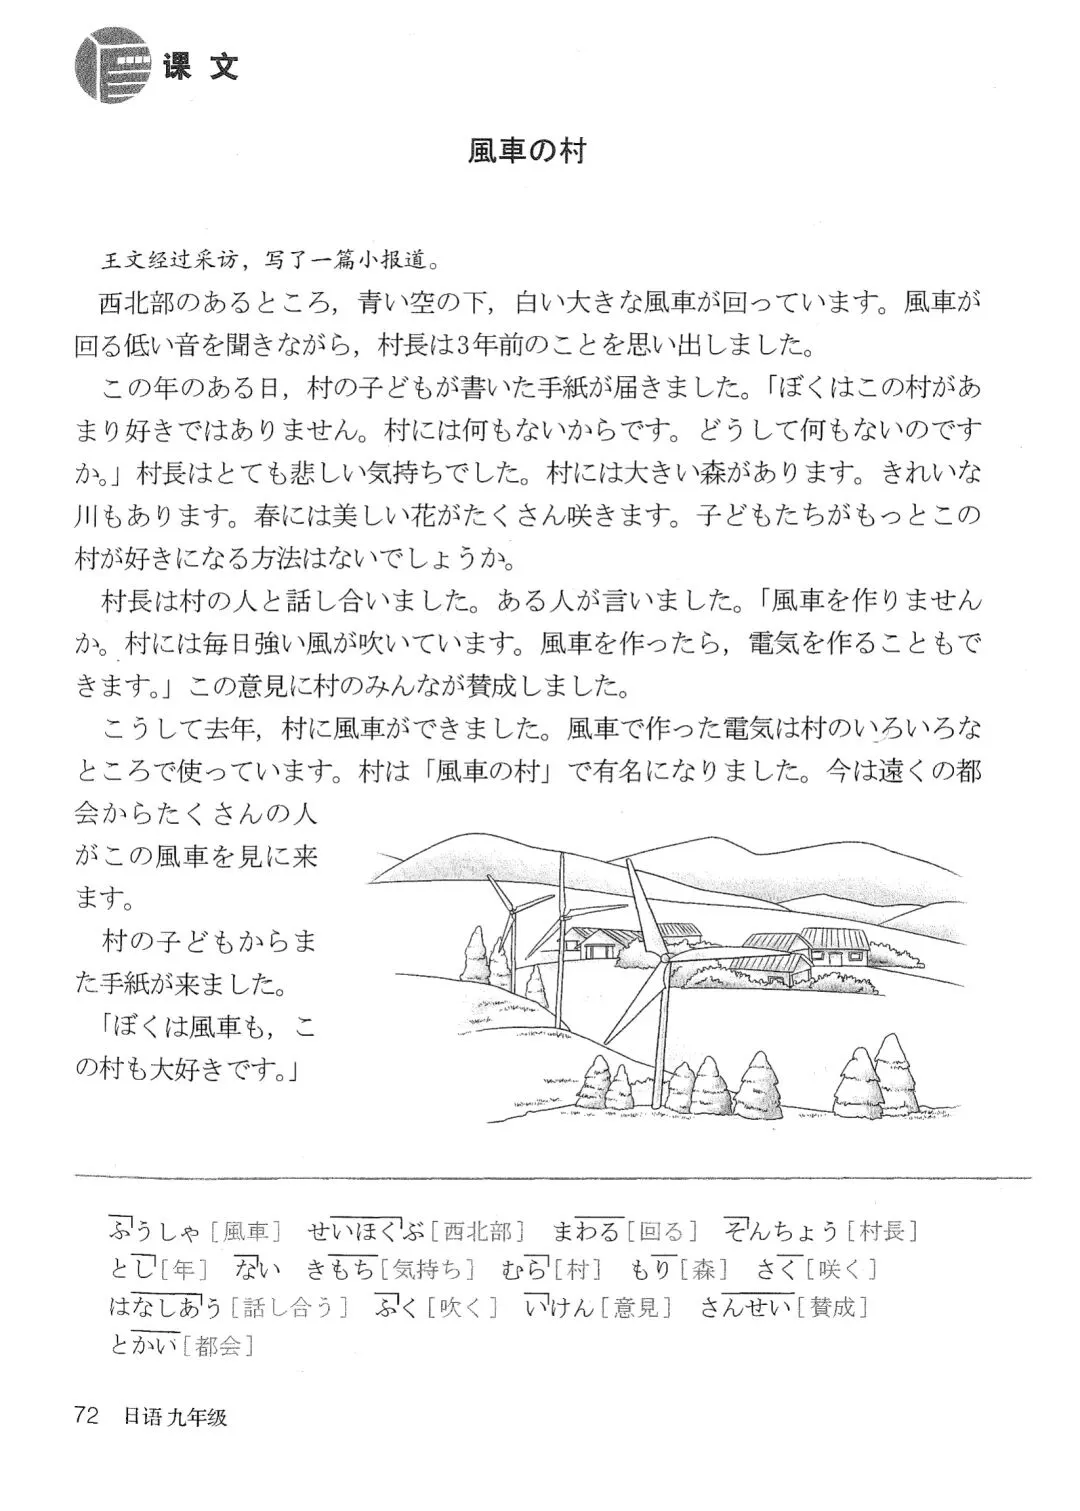 课文
風車の村
王文经过采访，写了一篇小报道。
西北部のあるところ，青い空の下，白い大きな風車が回っています。風車が
回る低い音を聞きながら，村長は3年前のことを思い出しました。
この年のある日，村の子どもが書いた手紙が届きました。「ぼくはこの村があ
まり好きではありません。村には何もないからです。どうして何もないのです
か。」村長はとても悲しい気持ちでした。村には大きい森があります。きれいな
川もあります。春には美しい花がたくさん咲きます。子どもたちがもっとこの
村が好きになる方法はないでしょうか。
村長は村の人と話し合いました。ある人が言いました。「風車を作りません
か。村には毎日強い風が吹いています。風車を作ったら，電気を作ることもで
きます。」この意見に村のみんなが賛成しました。
こうして去年，村に風車ができました。風車で作った電気は村のいろいろな
ところで使っています。村は「風車の村」で有名になりました。今は遠くの都
会からたくさんの人
がこの風車を見に来
ます。
村の子どもからま
た手紙が来ました。
「ぼくは風車も，こ
の村も大好きです。」
ふうしゃ［風車］ せいほくぶ［西北部］ まわる［回る］ そんちょう［村長］
とし［年］ ない きもち［気持ち］ むら［村］ もり［森］ さく［咲く］
はなしあう［話し合う］ ふく［吹く］ いけん［意見］ さんせい［賛成］
とかい［都会］
72 日语 九年级